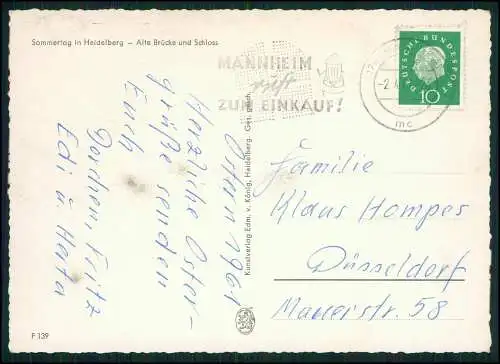 Sommertag in Heidelberg – Alte Brücke und Schloss
MANNHEIM
ruft
ZUM EINKAUF!
DEUTSCHE BUNDESPOST
10
-2.4
mc
Ostern 1961
Herzliche Oster-
grüße senden
Euch
Dorchen, Fritz
Edi u. Herta
Kunstverlag Edm. v. König, Heidelberg. Ges. gesch.
Familie
Klaus Hompes
Düsseldorf
Mauerstr. 58
F 139